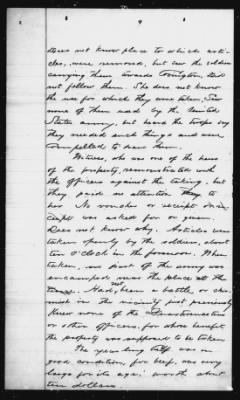 Does not know place to which arti-
cles, were removed, but saw the soldiers
carrying them towards Covington, did
not follow them. She does not know
the use for which they were taken, saw
none of them used by the United
States army, but heard the troops say
they needed such things and were
compelled to have them.
Witness, who was one of the heirs
of the property, remonstrated with
the officers against the taking, but
they paid no attention to
her. No voucher or receipt
was asked for or given.
Does not know why. Articles were
taken openly by the soldiers, about
ten o'clock in the forenoon. When
taken, no part of the army was
encamped near the place at the
Had not been a battle, or skir-
mish in the vicinity just previously
Knew none of the Quartermasters
or other officers, for whose benefit
the property was supposed to be taken
The yearling calf was in
good condition, for beef, was very
large for its age; worth about
ten dollars